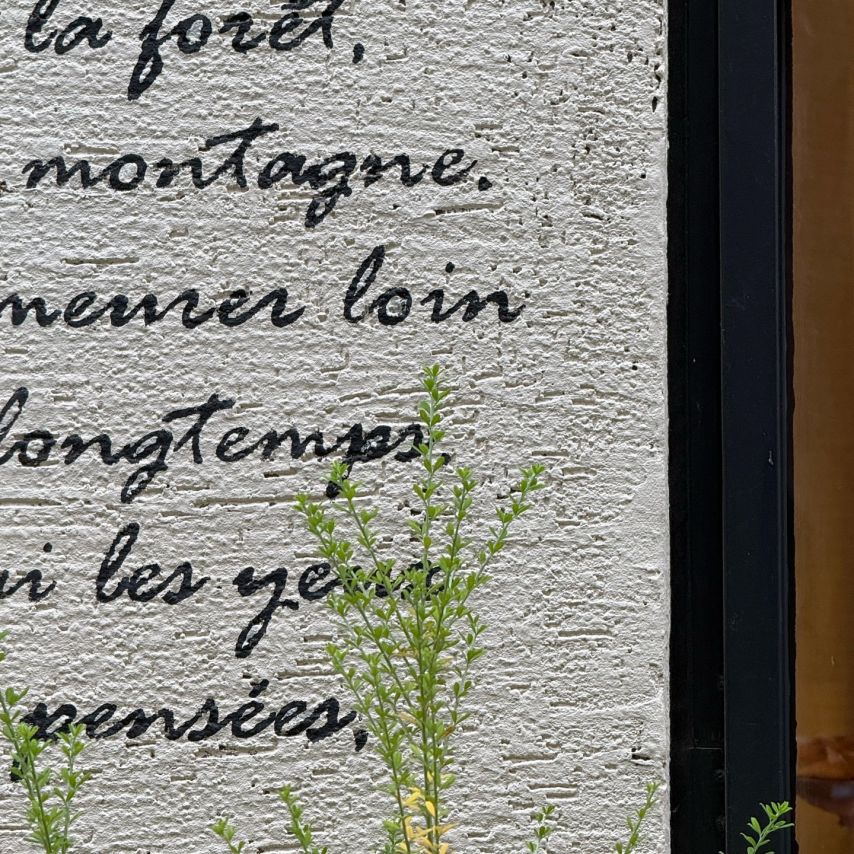 la forêt,
montagne.
meurer loin
longtemps.
ai les yeux
pensées,